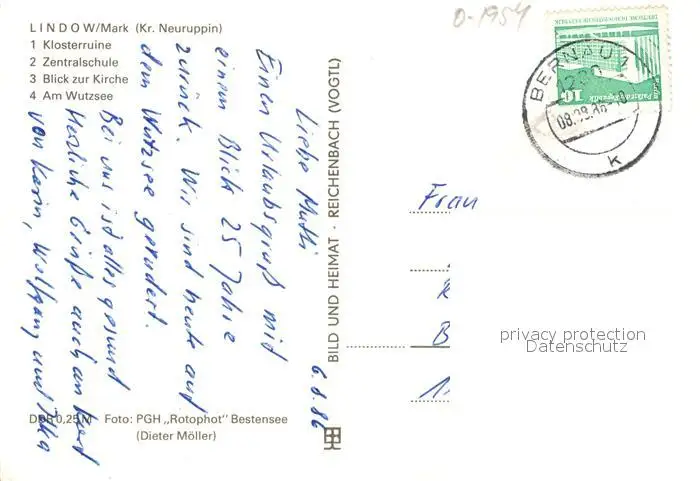 LINDOW/Mark (Kr. Neuruppin)
1 Klosterruine
2 Zentralschule
3 Blick zur Kirche
4 Am Wutzsee
6.8.86
Liebe Mutti
Einen Urlaubsgruß mit
einem Blick 25 Jahre
zurück. Wir sind heute auf
dem Wutzsee gerudert.
Bei uns ist alles gesund
Herzliche Grüße auch an Kurt
von Karin, Wolfgang und
DDR 0,25 M Foto: PGH „Rotophot" Bestensee
(Dieter Möller)
BILD UND HEIMAT · REICHENBACH (VOGTL)
0-1954
BERNAU 1
k
10
Frau
B
1
privacy protection
Datenschutz